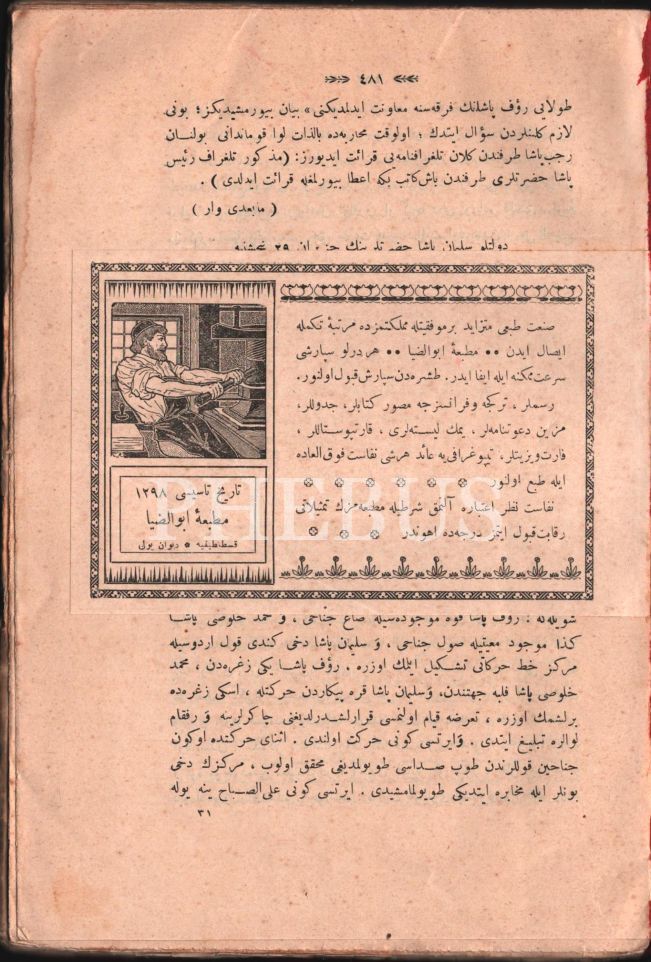 ٤٨١
طولایی رؤف پاشانك فرقه‌سنه معاونت ایدلمدیكنی» بیان بیورمشیدیكز؛ بونی
لازم كلنلردن سؤال ایتدك؛ اولوقت محاربه‌ده بالذات لوا قوماندانی بولنان
رجب پاشا طرفندن كلان تلغرافنامه‌یی قرائت ایدیورز: (مذكور تلغراف رئیس
پاشا حضرتلری طرفندن باش كاتب بكه اعطا بیورلمغله قرائت ایدلدی) .
( مابعدی وار )
دولتلو سلیمان پاشا حضرتلرینك حزیران ٢٩
صنعت طبعی متزاید بر موفقیتله مملكتمزده مرتبهٔ تكمله
ایصال ایدن •• مطبعهٔ ابوالضیا •• هر درلو سپارشی
سرعت ممكنه ایله ایفا ایدر. طشره‌دن سپارش قبول اولنور.
رسملر ، تركجه و فرانسزجه مصور كتابلر، جدوللر،
مزین دعوتنامه‌لر، یمك لیسته‌لری، قارتپوستاللر،
قارت ویزیتلر، تیپوغرافی‌یه عائد هر شی نفاست فوق العاده
ایله طبع اولنور
نفاست نظر اعتباره آلنمق شرطیله مطبعه‌مزك تمثیلاتی
رقابت قبول ایتمز درجه‌ده اهوندر
تاریخ تاسیسی ١٢٩٨
مطبعهٔ ابوالضیا
قسطنطینیه * دیوان یولی
PHEBUS
شویله‌كه : رؤف پاشا قوه موجوده‌سیله صاغ جناحی ، و محمد خلوصی پاشا
كذا موجود معیتیله صول جناحی ، و سلیمان پاشا دخی كندی قول اردوسیله
مركز خط حركاتی تشكیل ایتمك اوزره . رؤف پاشا یكی زغره‌دن ، محمد
خلوصی پاشا فلبه جهتندن، و سلیمان پاشا قره پیكاردن حركتله ، اسكی زغره‌ده
برلشمك اوزره ، تعرضه قیام اولنمسی قرارلشدرلدیغنی چاكرلرینه و رفقام
لوالره تبلیغ ایتدی . وایرتسی كونی حركت اولندی . اثنای حركتده اوكون
جناحین قوللرندن طوپ صداسی طویولمدیغی محقق اولوب ، مركزك دخی
بونلر ایله مخابره ایتدیكی طویولمامشیدی . ایرتسی كونی علی‌الصباح ینه یوله
٣١